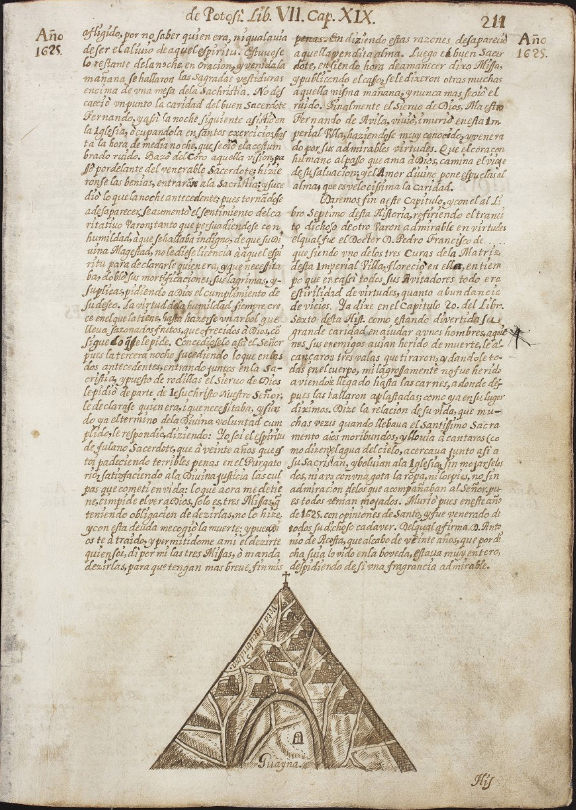 de Potosi. Lib. VII. Cap. XIX.
211
Año
1625.
afligido, por no saber quien era, ni qual avia
de ser el alivio de aquel espiritu. Estuvose
lo restante de la noche en Oracion, y venida la
mañana, se hallaron las Sagradas vestiduras
encima de una mesa de la Sachristia. No des
caeciò un punto la caridad del buen Sacerdote
Fernando, y assi la noche siguiente assistiò en
la Iglesia, ocupandola en santos exercicios, has
ta la hora de media noche, que se oiò el acostum
brado ruido. Baxò del Coro aquella vision, pa
sò por delante del venerable Sacerdote; hizie
ronse las venias, entraron a la Sacristia; y suce
diò lo que la noche antecedente, pues tornado se
a desaparecer, se aumentò el sentimiento del ca
ritativo Varon, tanto que persuadiendose con
humildad, à que se hallaba indigno, de que su Di
vina Magestad, no le diese licencia à aquel espi
ritu para declararle quien era, y que necesita
ba, doblò sus mortificaciones, sus lagrimas, y
suplicas, pidiendo a Dios el cumplimiento de
su deseo. La virtud de la humildad siempre cre
ce en el que la tiene, hasta hazerse un arbol que
lleva sazonados frutos, que ofrecidos a Dios, con
sigue lo que se le pide. Concedioselo assi el Señor
pues la tercera noche, sucediendo lo que en las
dos antecedentes, entrando juntos en la Sa-
cristia, y puesto de rodillas el Siervo de Dios
le pidiò de parte de Iesuchristo Nuestro Señor,
le declarase quien era, i que necesitaba, y si a
do ya el termino de la Divina voluntad cum
plido, le respondio, diziendo: Yo soi el espiritu
de fulano Sacerdote, que à veinte años que es
toi padeciendo terribles penas en el Purgato
rio, satisfaciendo a la Divina justicia las cul
pas que cometi en vida; lo que aora me detie
ne, e impide el ver a Dios, es solo tres Missas, q
teniendo obligacion de dezirlas, no lo hize,
y con esta deuda me cogiò la muerte; y pues Di
os te à traido, y permitidome a mi el dezirte
quien soi, di por mi las tres Missas, ò manda
dezirlas, para que tengan mas breve fin mis
penas. En diziendo estas razones desapareciò
aquella vendita alma. Luego el buen Sacer
dote, en siendo hora de amanecer dixo Missa,
y publicando el caso, se le dixeron otras muchas
aquella misma mañana, y nunca mas se oiò el
ruido. Finalmente el Siervo de Dios, Maestro
Fernando de Avila, viviò, i murio en esta Im
perial Villa, haziendose muy conocido, y venera
do por sus admirables virtudes. Que el coraçon
humano al paso que ama a Dios, camina el viaje
de su salvacion; y el Amor divino pone espuelas al
alma, que es velocissima la caridad.
Daremos fin a este Capitulo, y con el al Li
bro Septimo desta Historia, refiriendo el transi
to dichoso de otro Varon admirable en virtudes
el qual fue el Doctor D. Pedro Francisco de . . .
que siendo uno de los tres Curas de la Matriz
desta Imperial Villa, floreciò en ella, en tiem
po que en casi todos sus Avitadores todo era
esterilidad de virtudes, quanto abundancia
de vicios. Ya dixe en el Capitulo 20. del Libr.
Sexto desta Hist. como estando divertida su
grande caridad en ajudar a unos hombres, a quie
nes sus enemigos avian herido de muerte, le al-
cançaron tres valas que tiraron, y dandose to
das en el cuerpo, milagrosamente no fue herido
aviendole llegado hasta las carnes, a donde des
pues las hallaron aplastadas; como ya en su lugar
diximos. Dize la relacion de su vida, que mu-
chas vezes quando llebava el Santissimo Sacra
mento a los moribundos, y llovia a cantaros (co
mo dizen) el agua del cielo, acercava junto assi a
su Sacristan, y bolvian a la Iglesia, sin mojarse los
dos, ni aver una gota la ropa, ni los pies, no sin
admiracion de los que acompañaban al Señor, pu
es todos venian mojados. Muriò pues este año
de 1625. con opiniones de Santo, y fue venerado di
todos su dichoso cadaver. Del qual afirma D. Anto
nio de Acosta, que al cabo de veinte años, que por di
cha suia lo vido en la boveda, estava muy entero,
despidiendo de si una fragrancia admirable.
Año
1625.
Guayna.
His